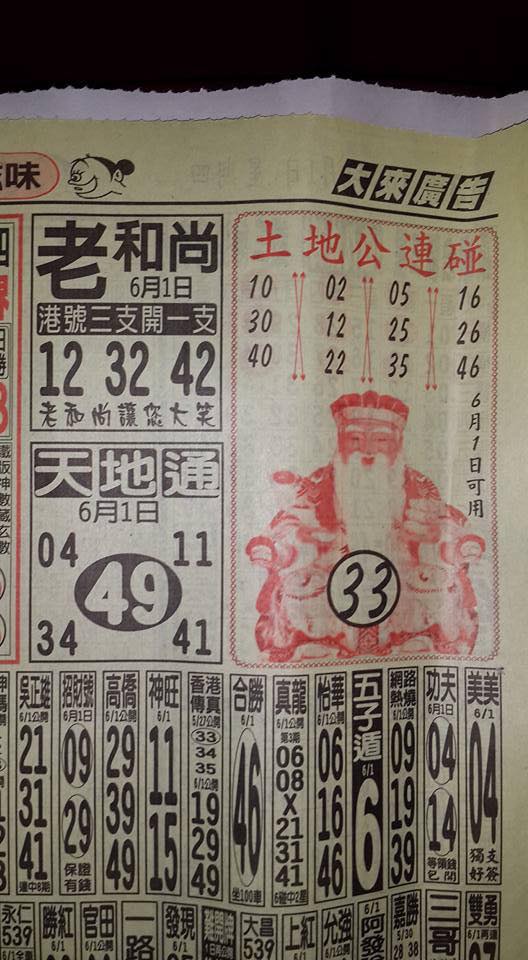 味
大來廣告
老和尚
6月1日
港號三支開一支
12 32 42
老和尚讓您大笑
天地通
6月1日
04 11
49
34 41
土地公連碰
10 02 05 16
30 12 25 26
40 22 35 46
6月1日可用
33
鐵板神數藏玄數
吳正雄
6/1公開
21
31
41
連中8期
招財號
6月1日
09
29
保證有錢
高僑
6/1公開
29
39
49
神旺
6/1
11
15
香港傳真
5/27公開
33
34
35
6/1公開
19
29
49
合勝
6/1
46
坐100車
真龍
6/1公開
第3期
06
08
X
21
31
41
6碰中2星
怡華
6/1公開
06
16
46
五子遁
6/1
6
網路熱燒
6/1公開
09
19
39
功夫
6月1日
04
14
等領錢包開
美美
6/1
04
獨支好簽
永仁
539
勝紅
6/1
官田
一路
發現
大昌
539
上紅
允強
6/1
阿發
嘉勝
5/30
28 38
三哥
雙勇
6/1再連